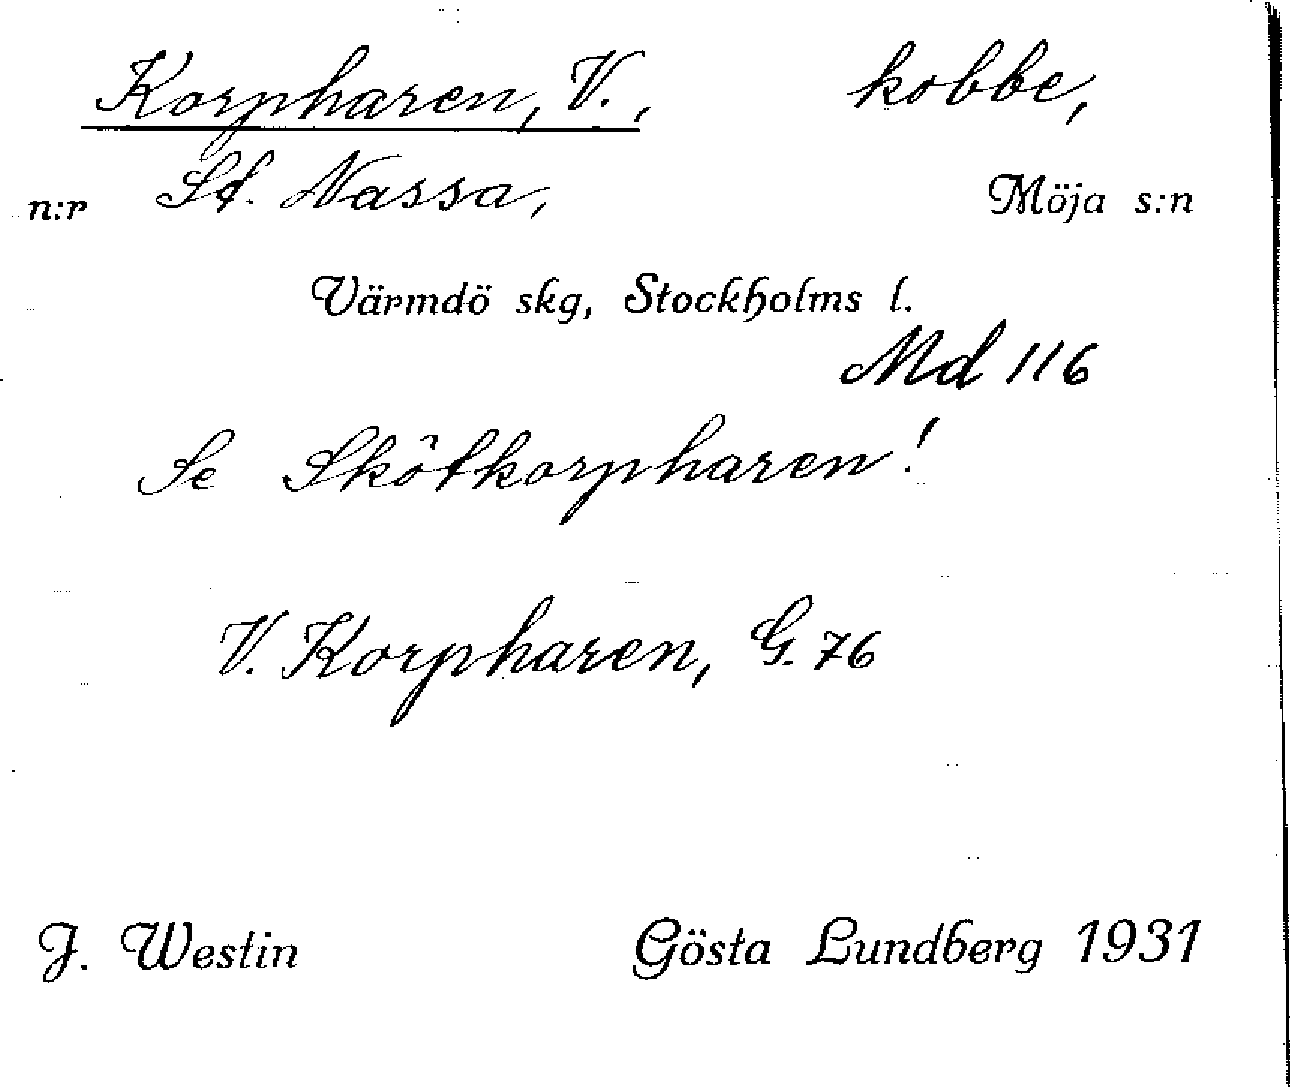 Korpharen, V., kobbe,
n:r St. Nassa, Möja s:n
Värmdö skg, Stockholms l.
Md 116
Se Skötkorpharen!
V. Korpharen, G. 76
J. Westin Gösta Lundberg 1931